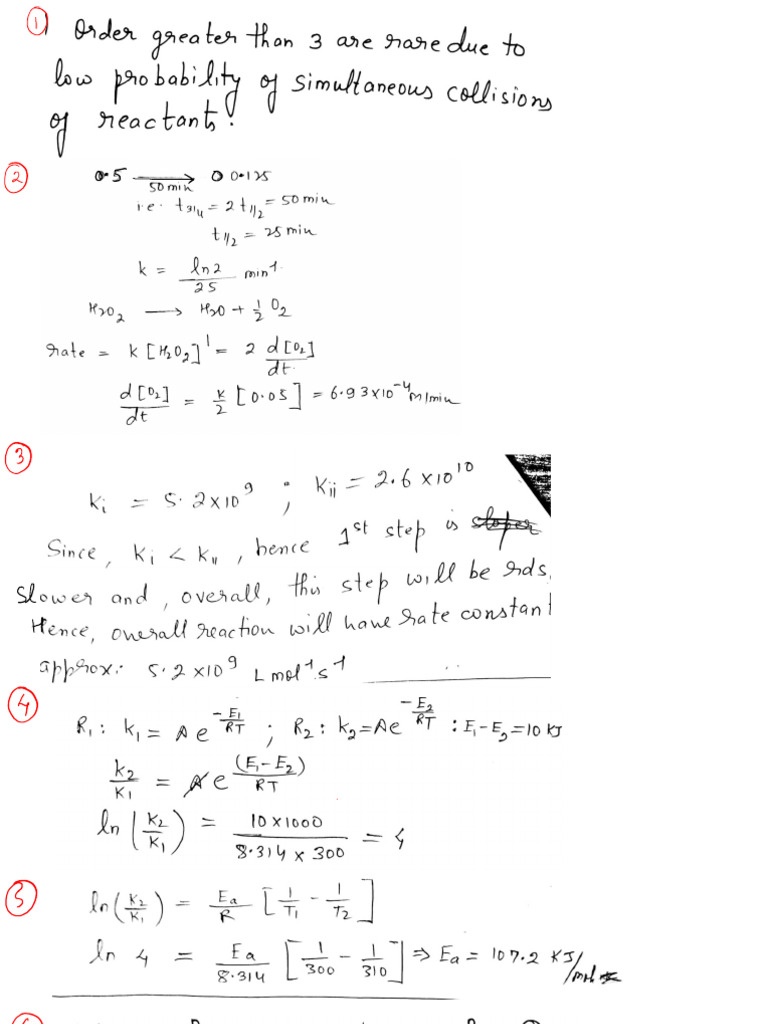 1) Order greater than 3 are rare due to
low probability of simultaneous collisions
of reactants.
2) 0.5 —50 min→ 0 0.125
i.e. t3/4 = 2 t1/2 = 50 min
t1/2 = 25 min
k = ln2/25 min-1.
H2O2 → H2O + 1/2 O2
rate = k [H2O2]^1 = 2 d[O2]/dt.
d[O2]/dt = k/2 [0.05] = 6.93×10^-4 M/min
3) Ki = 5.2×10^9 ; Kii = 2.6×10^10
Since, Ki < Kii, hence 1st step is
slower and, overall, this step will be rds,
Hence, overall reaction will have rate constant
approx: 5.2×10^9 L mol-1 s-1
4) R1: k1 = Ae^(-E1/RT) ; R2: k2 = Ae^(-E2/RT) : E1-E2=10 KJ
k2/k1 = A e^((E1-E2)/RT)
ln(k2/k1) = 10×1000/(8.314×300) = 4
5) ln(k2/k1) = Ea/R [1/T1 - 1/T2]
ln 4 = Ea/8.314 [1/300 - 1/310] ⇒ Ea = 107.2 KJ/mol